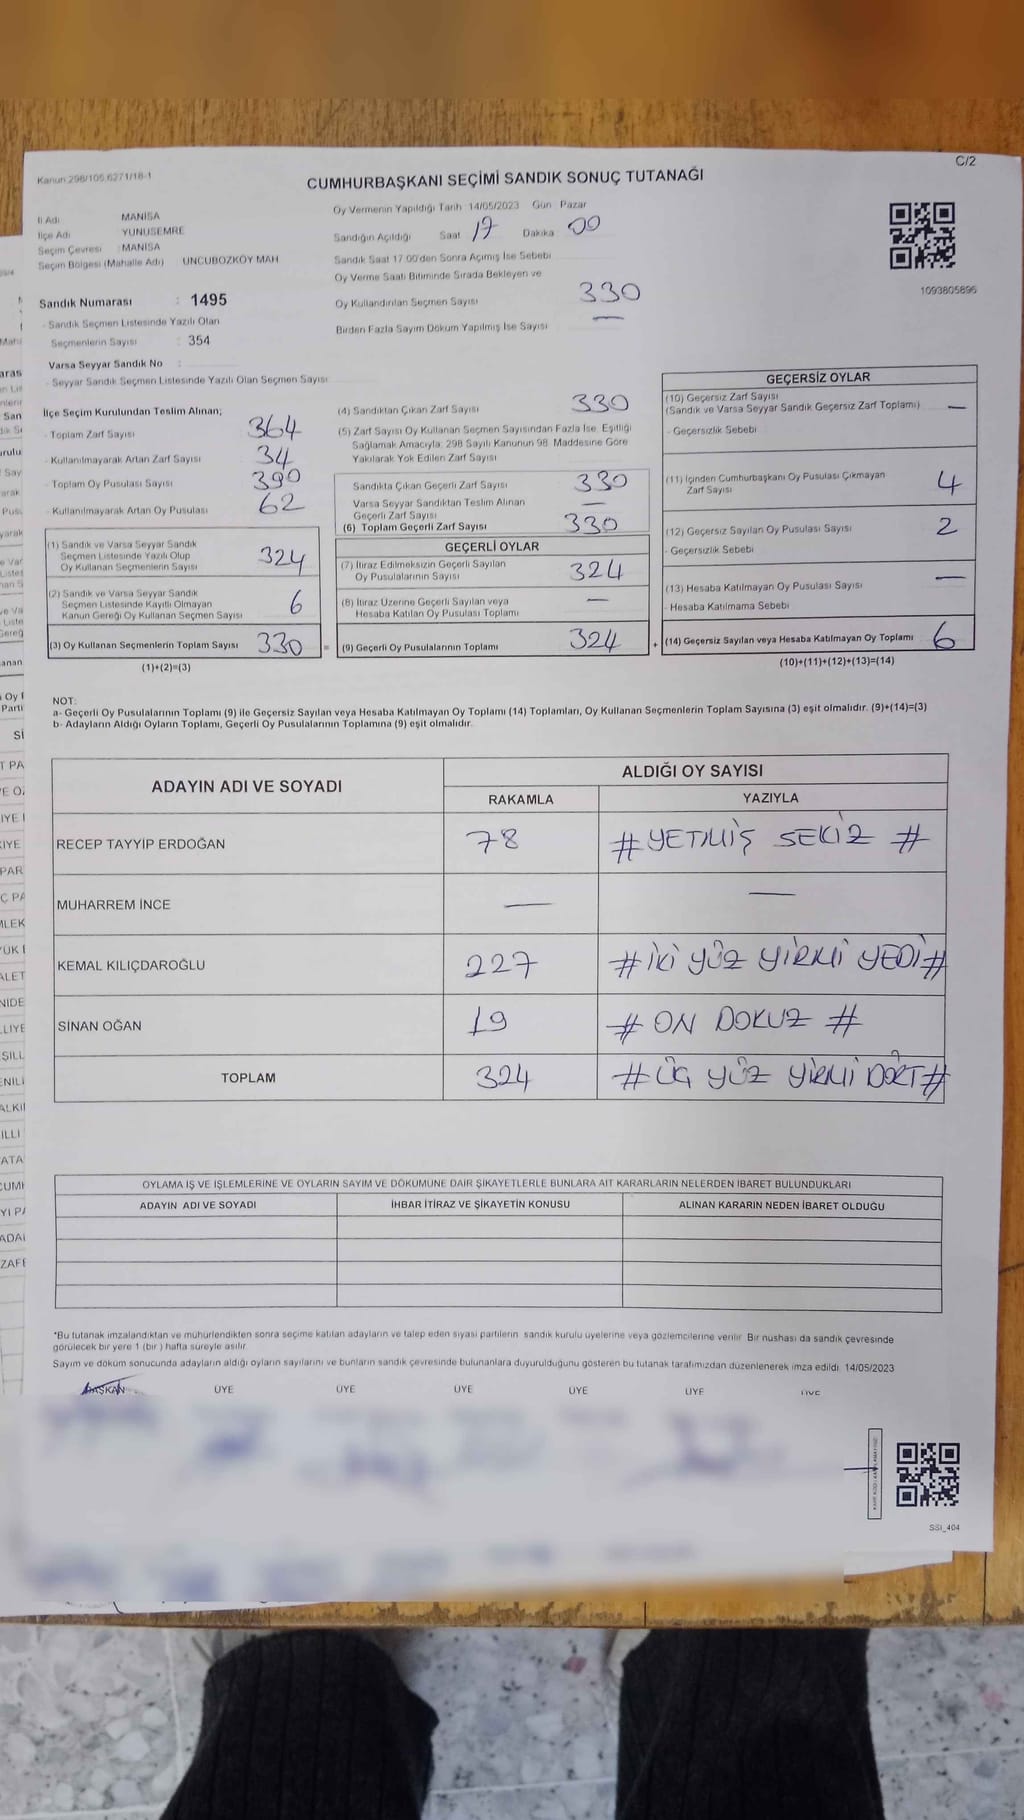 C/2
Kanun 298/105,6271/18-1
CUMHURBAŞKANI SEÇİMİ SANDIK SONUÇ TUTANAĞI
İl Adı MANİSA
İlçe Adı YUNUSEMRE
Seçim Çevresi : MANİSA
Seçim Bölgesi (Mahalle Adı) UNCUBOZKÖY MAH
Oy Vermenin Yapıldığı Tarih 14/05/2023 Gün Pazar
Sandığın Açıldığı Saat 17 Dakika 00
Sandık Saat 17.00'den Sonra Açımış İse Sebebi
Oy Verme Saati Bitiminde Sırada Bekleyen ve
Oy Kullandırılan Seçmen Sayısı 330
Birden Fazla Sayım Döküm Yapılmış İse Sayısı —
1093805896
Sandık Numarası : 1495
- Sandık Seçmen Listesinde Yazılı Olan
Seçmenlerin Sayısı : 354
Varsa Seyyar Sandık No :
- Seyyar Sandık Seçmen Listesinde Yazılı Olan Seçmen Sayısı
İlçe Seçim Kurulundan Teslim Alınan;
- Toplam Zarf Sayısı 364
- Kullanılmayarak Artan Zarf Sayısı 34
- Toplam Oy Pusulası Sayısı 390
- Kullanılmayarak Artan Oy Pusulası 62
(1) Sandık ve Varsa Seyyar Sandık
Seçmen Listesinde Yazılı Olup
Oy Kullanan Seçmenlerin Sayısı 324
(2) Sandık ve Varsa Seyyar Sandık
Seçmen Listesinde Kayıtlı Olmayan
Kanun Gereği Oy Kullanan Seçmen Sayısı 6
(3) Oy Kullanan Seçmenlerin Toplam Sayısı 330 =
(1)+(2)=(3)
(4) Sandıktan Çıkan Zarf Sayısı 330
(5) Zarf Sayısı Oy Kullanan Seçmen Sayısından Fazla İse, Eşitliği
Sağlamak Amacıyla, 298 Sayılı Kanunun 98. Maddesine Göre
Yakılarak Yok Edilen Zarf Sayısı
Sandıkta Çıkan Geçerli Zarf Sayısı 330
Varsa Seyyar Sandıktan Teslim Alınan
Geçerli Zarf Sayısı —
(6) Toplam Geçerli Zarf Sayısı 330
GEÇERLİ OYLAR
(7) İtiraz Edilmeksizin Geçerli Sayılan
Oy Pusulalarının Sayısı 324
(8) İtiraz Üzerine Geçerli Sayılan veya
Hesaba Katılan Oy Pusulası Toplamı —
(9) Geçerli Oy Pusulalarının Toplamı 324 +
GEÇERSİZ OYLAR
(10) Geçersiz Zarf Sayısı
(Sandık ve Varsa Seyyar Sandık Geçersiz Zarf Toplamı) —
- Geçersizlik Sebebi
(11) İçinden Cumhurbaşkanı Oy Pusulası Çıkmayan
Zarf Sayısı 4
(12) Geçersiz Sayılan Oy Pusulası Sayısı 2
- Geçersizlik Sebebi
(13) Hesaba Katılmayan Oy Pusulası Sayısı —
- Hesaba Katılmama Sebebi
(14) Geçersiz Sayılan veya Hesaba Katılmayan Oy Toplamı 6
(10)+(11)+(12)+(13)=(14)
NOT:
a- Geçerli Oy Pusulalarının Toplamı (9) ile Geçersiz Sayılan veya Hesaba Katılmayan Oy Toplamı (14) Toplamları, Oy Kullanan Seçmenlerin Toplam Sayısına (3) eşit olmalıdır. (9)+(14)=(3)
b- Adayların Aldığı Oyların Toplamı, Geçerli Oy Pusulalarının Toplamına (9) eşit olmalıdır.
ADAYIN ADI VE SOYADI ALDIĞI OY SAYISI
RAKAMLA YAZIYLA
RECEP TAYYİP ERDOĞAN 78 # YETMİŞ SEKİZ #
MUHARREM İNCE — —
KEMAL KILIÇDAROĞLU 227 # İKİ YÜZ YİRMİ YEDİ #
SİNAN OĞAN 19 # ON DOKUZ #
TOPLAM 324 # ÜÇ YÜZ YİRMİ DÖRT #
OYLAMA İŞ VE İŞLEMLERİNE VE OYLARIN SAYIM VE DÖKÜMÜNE DAİR ŞİKAYETLERLE BUNLARA AİT KARARLARIN NELERDEN İBARET BULUNDUKLARI
ADAYIN ADI VE SOYADI İHBAR İTİRAZ VE ŞİKAYETİN KONUSU ALINAN KARARIN NEDEN İBARET OLDUĞU
*Bu tutanak imzalandıktan ve mühürlendikten sonra seçime katılan adayların ve talep eden siyasi partilerin sandık kurulu üyelerine veya gözlemcilerine verilir. Bir nüshası da sandık çevresinde
görülecek bir yere 1 (bir ) hafta süreyle asılır.
Sayım ve döküm sonucunda adayların aldığı oyların sayılarını ve bunların sandık çevresinde bulunanlara duyurulduğunu gösteren bu tutanak tarafımızdan düzenlenerek imza edildi. 14/05/2023
BAŞKAN ÜYE ÜYE ÜYE ÜYE ÜYE ÜYE
SSİ_404